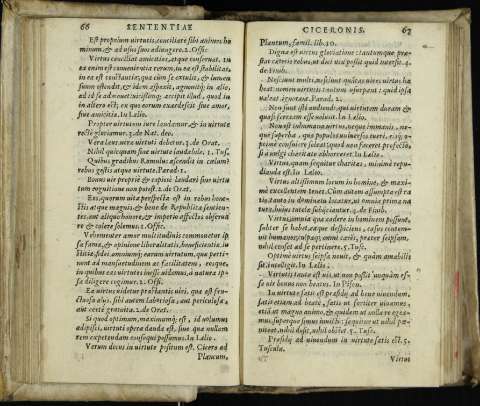 66 SENTENTIAE
Est proprium virtutis, conciliare sibi animos ho
minum, & ad usus suos adiungere. 2. Offic.
Virtus conciliat amicitias, atque conseruat. in
ea enim est conuenientia rerum, in ea est stabilitas,
in ea est constantia; quae cùm se extulit, & lumen
suum ostendit, & idem aspexit, agnouitq; in alio,
ad id se admouet: vicissimq; accipit illud, quod in
in altero est; ex quo eorum exardescit siue amor,
siue amicitia. In Lælio.
Propter virtutem iure laudamur, & in virtute
rectè gloriamur. 3. de Nat. deo.
Vera laus uni virtuti debetur. 3. de Orat.
Nihil quicquam siue virtute laudabile. 5. Tus.
Quibus gradibus Romulus ascendit in cælum?
rebus gestis atque virtute. Parad. 1.
Bonus vir propriè & copiosè laudari sine virtu
tum cognitione non potest. 2. de Orat.
Eos, quorum vita perspecta est in rebus hone-
stis atque magnis, & bene de Republica sentien-
tes, aut aliquo honore, & imperio affectos obserua
re & colere solemus. 1. Offic.
Vehementer amor multitudinis commouetur ip
sa fama, & opinione liberalitatis, beneficentiæ, iu
stitiæ, fidei, omniumq; earum virtutum, quæ perti-
nent ad mansuetudinem ac facilitatem. eosque,
in quibus eas virtutes inesse uidemus, à natura ip-
sa diligere cogimur. 2. Offic.
Ea virtus uidetur præstantis uiri, quæ est fru-
ctuosa alijs, sibi autem laboriosa, aut periculosa,
aut certè gratuita. 2. de Orat.
Si quod optimum, maximumq; est, id volumus
adipisci, virtuti opera danda est, sine qua nullam
rem expetendam consequi possumus. In Lælio.
Verum decus in virtute positum est. Cicero ad
Plancum,
CICERONIS. 67
Plancum, famil. lib. 10.
Digna est uirtus gloriatione: tantumque præ-
stat cæteris rebus, ut dici uix possit quid intersit. 4.
de Finib.
Nesciunt multi, nesciunt quas uires uirtus ha
beat: nomen uirtutis tantum usurpant: quid ipsa
ualeat ignorant. Parad. 2.
Non sunt isti audiendi, qui uirtutem duram &
quasi ferream esse uolunt. In Lælio.
Non est inhumana uirtus, neque immanis, ne-
que superba, quæ etiam populos uniuersos tueri, eisq; op
timè consulere soleat: quod non faceret profectò,
si à uulgi charitate abhorreret. In Lælio.
Virtus, quam sequitur charitas, minimè repu-
dianda est. In Lælio.
Virtus altissimum locum in homine, & maxi
mè excellentem tenet. Cùm autem assumpta est ra
tio tanto in dominatu locatur, ut omnia prima na
turæ, huius tutelæ subijciantur. 4. de Finib.
Virtus, omnia quæ cadere in hominem possunt,
subter se habet, eaque despiciens, casus contem-
nit humanos; culpaq; omni carens, præter seipsam,
nihil censet ad se pertinere. 5. Tusc.
Optimè uirtus seipsa nouit, & quàm amabilis
sit, intelligit. In Lælio.
Virtutis tanta est uis, ut non possit unquam es-
se uir bonus non beatus. In Pison.
In uirtute satis est præsidij ad bene uiuendum.
satis etiam ad beatè, satis ut fortiter uiuamus,
etiã ut magno animo, & quidem ut nulla re egea-
mus, semperque simus inuicti: sequitur ut nihil pœ-
niteat, nihil desit, nihil obstet. 5. Tusc.
Præsidij ad uiuendum in virtute satis est. 5.
Tuscula.
Virtus